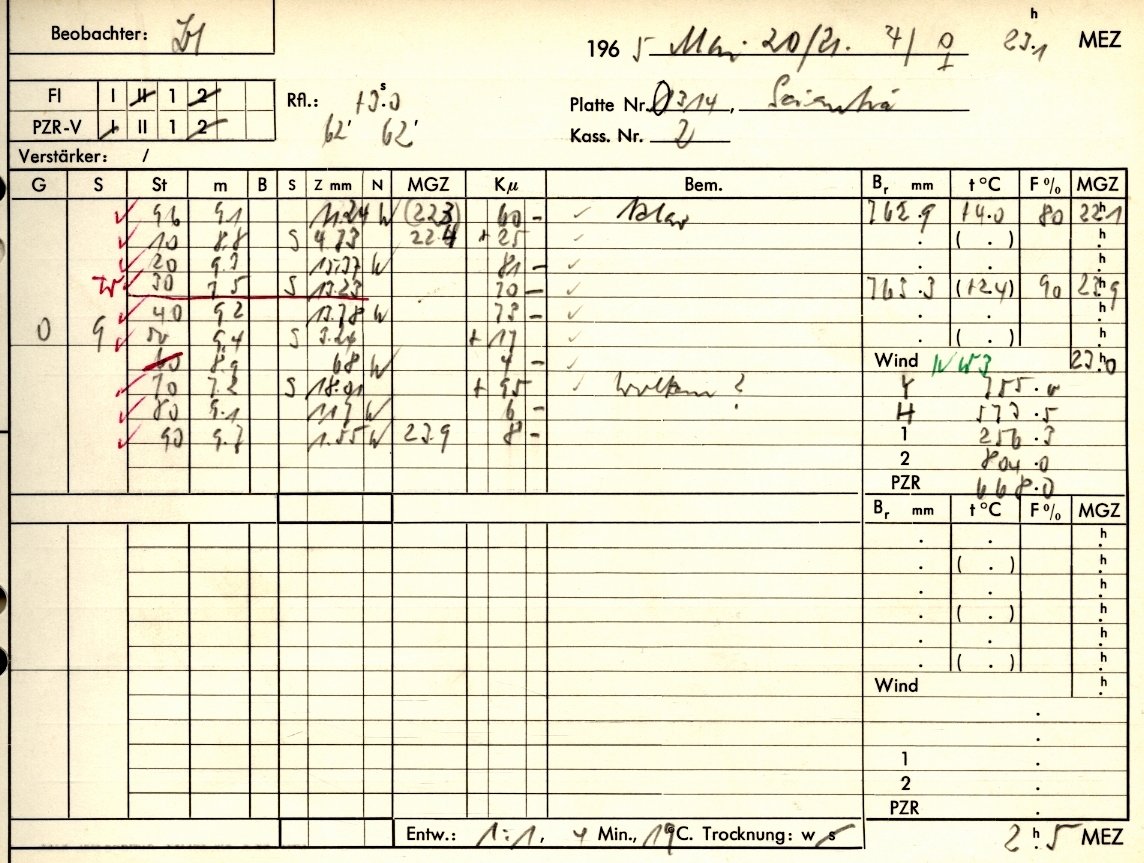 Beobachter:
196 5 Mai 20/21. 23 h .1 MEZ
FI I II 1 2 Rfl.: +3 s .0 Platte Nr. 0314,
PZR-V I II 1 2 62' 62' Kass. Nr. 2
Verstärker: /
G S St m B S Z mm N MGZ Kµ Bem. Br mm t°C F% MGZ
96 9.1 11.24 W (223) 60 - klar 762.9 +4.0 80 22 h 1
10 8.8 S 4.73 224 + 25 . ( . ) h .
20 9.3 15.37 W 81 - . . h .
30 7.5 S 13.23 70 - 763.3 (+2.4) 90 23 h 9
40 9.2 13.78 W 73 - . . h .
0 9 50 9.4 S 3.24 + 17 . ( . ) h .
60 8.9 68 W 4 - Wind NW3 23 h .0
70 7.2 S 18.01 + 95 Wolken? Y 755.0
80 9.1 119 W 6 - H 573.5
90 9.7 1.55 W 23.9 8 - 1 256.3
2 804.0
PZR 668.0
Br mm t°C F% MGZ
. . h .
. ( . ) h .
. . h .
. ( . ) h .
. . h .
. ( . ) h .
Wind h .
.
.
1 .
2 .
PZR .
Entw.: 1:1, 4 Min., 19°C. Trocknung: w s 2 h .5 MEZ